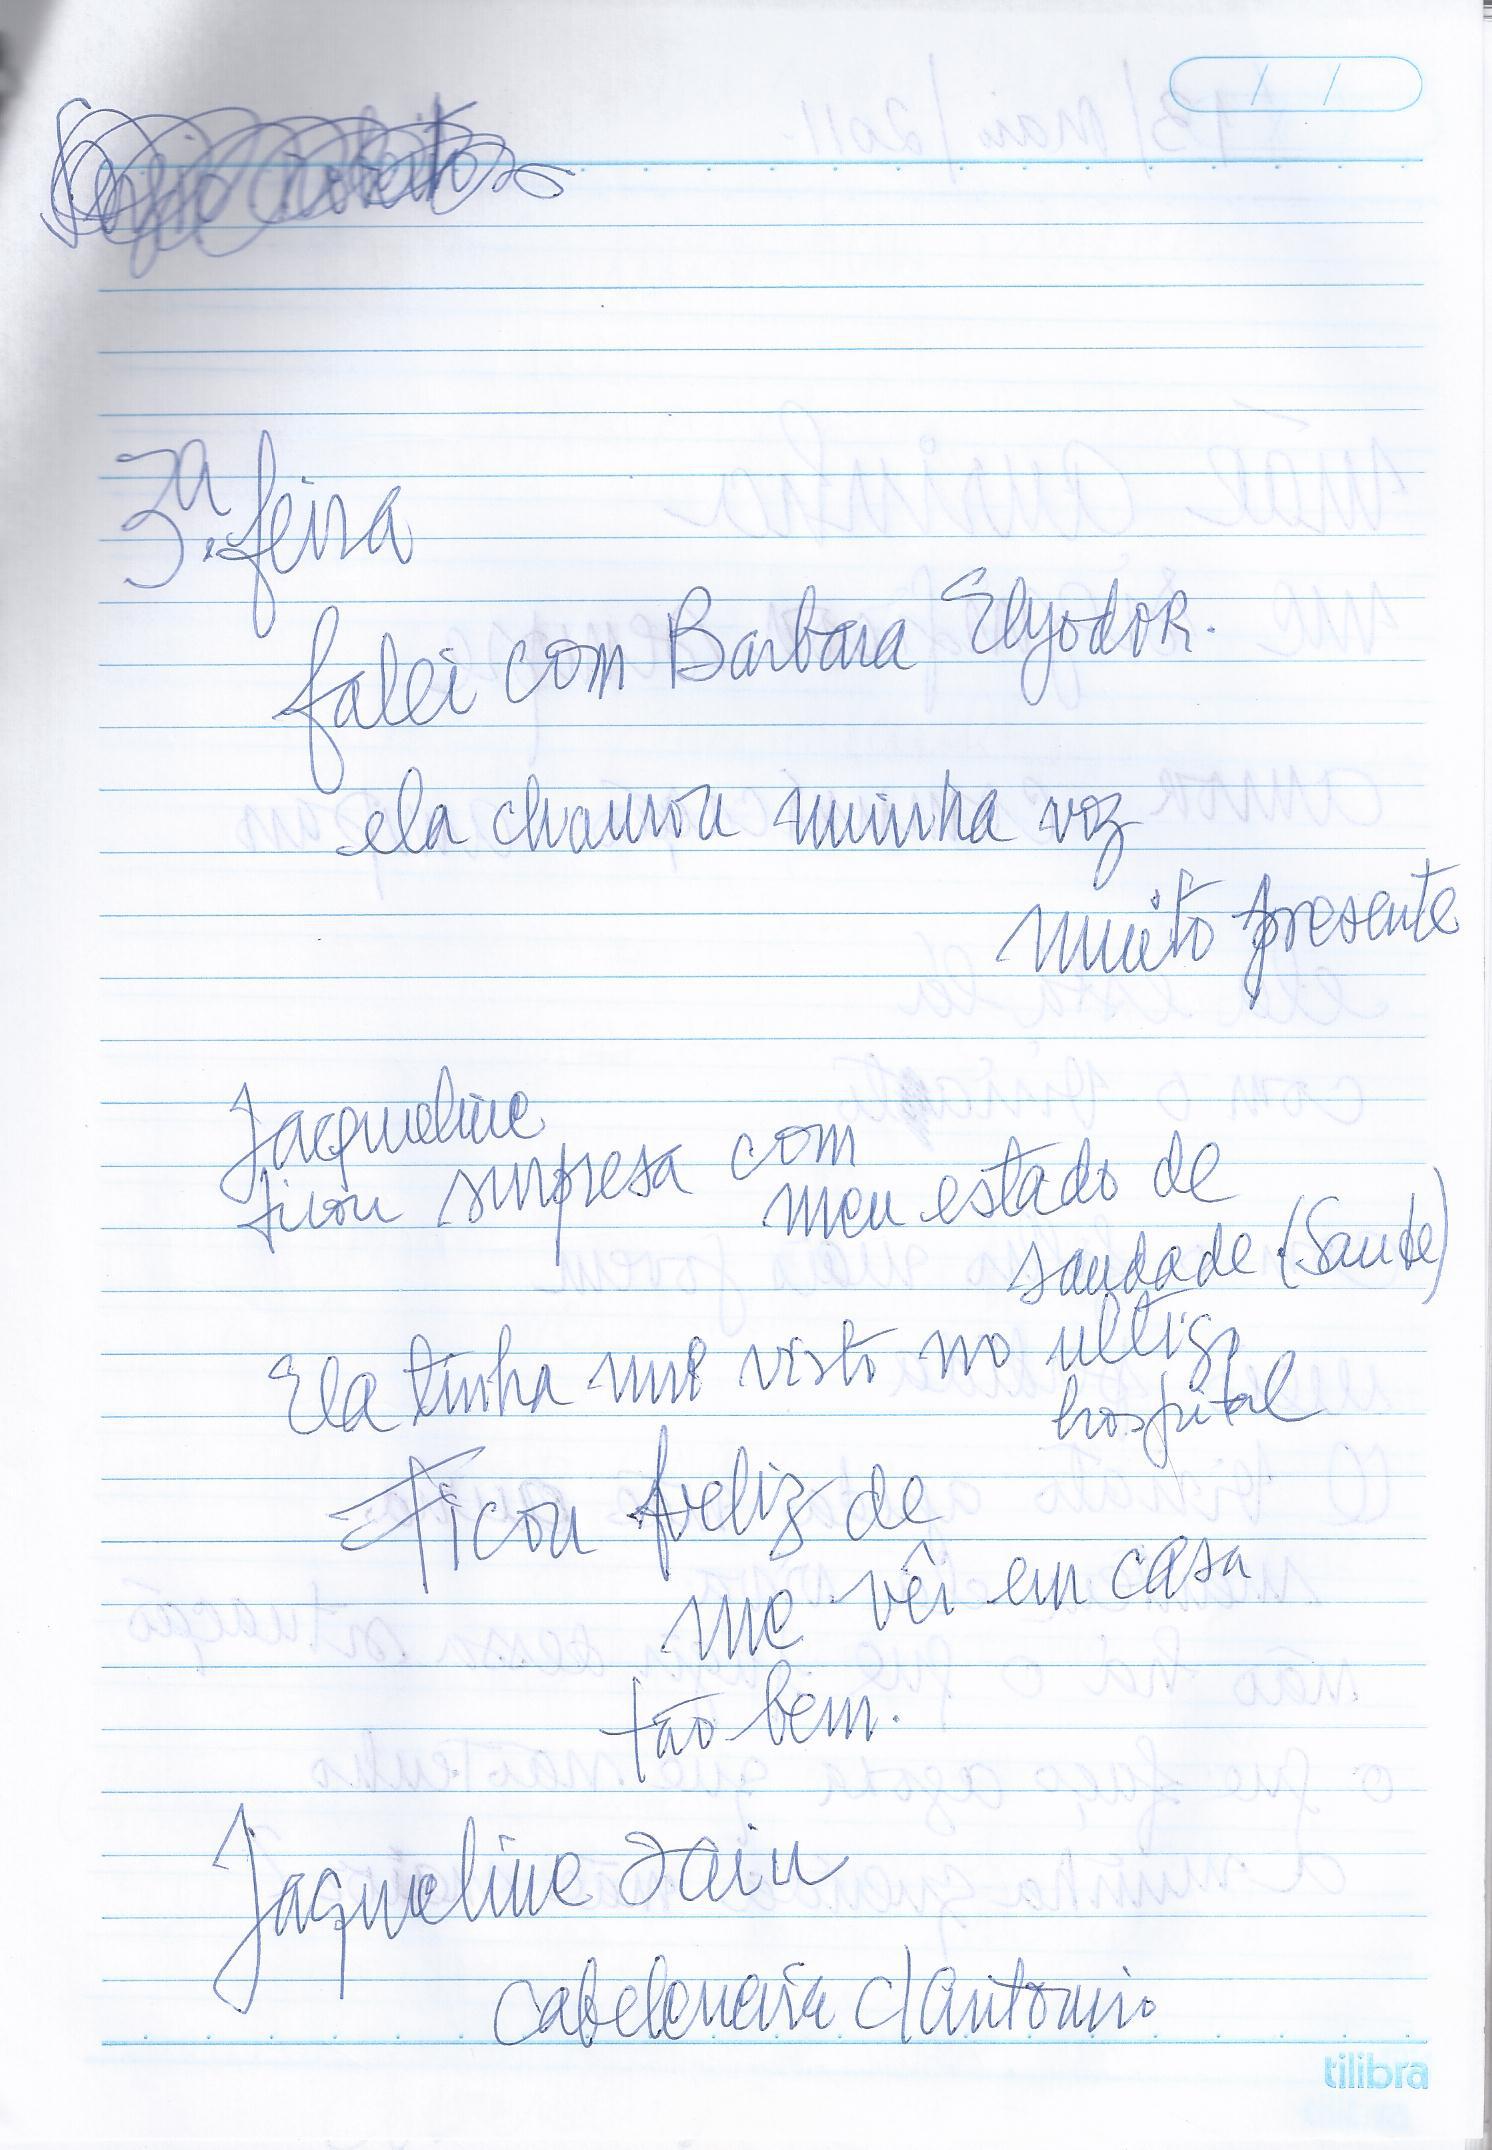 3ª. feira
falei com Barbara Elyodor.
ela chamou minha voz
muito presente
Jacqueline
ficou surpresa com
meu estado de
saudade (Saude)
Ela tinha me visto no
hospital
Ficou feliz de
me vêr em casa
tão bem.
Jaqueline
cabeleneira c/ Antonio
tilibra